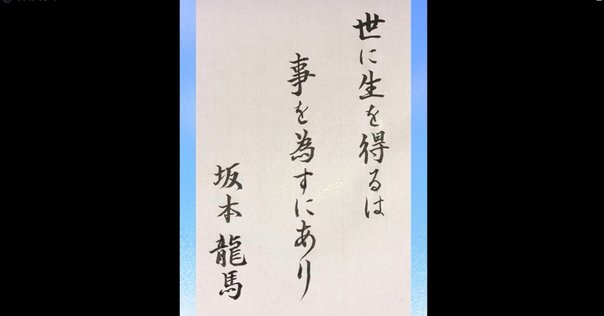 世に生を得るは
事を為すにあり
坂本龍馬